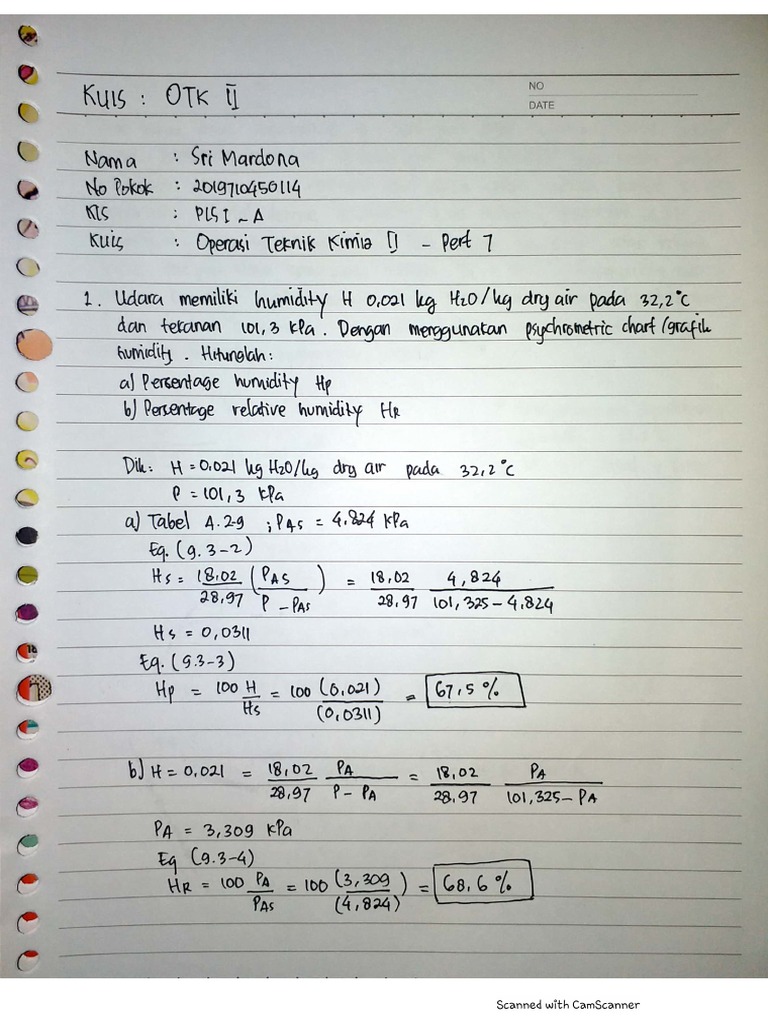 Kuis : OTK II
NO
DATE
Nama : Sri Mardona
No Pokok : 2019710450114
Kls : PLSI - A
Kuis : Operasi Teknik Kimia II - Pert 7
1. Udara memiliki humidity H 0,021 kg H2O/kg dry air pada 32,2°C
dan tekanan 101,3 kPa. Dengan menggunakan psychrometric chart/grafik
humidity. Hitunglah:
a) Persentage humidity Hp
b) Persentage relative humidity HR
Dik: H = 0.021 kg H2O/kg dry air pada 32,2°C
P = 101,3 kPa
a) Tabel A.2-9 ; PAS = 4.824 kPa
Eq. (9.3-2)
Hs = 18.02/28,97 (PAS/P - PAS) = 18,02/28,97 4,824/101,325 - 4.824
Hs = 0,0311
Eq. (9.3-3)
Hp = 100 H/Hs = 100 (0,021)/(0,0311) = 67,5 %
b) H = 0,021 = 18,02/28,97 PA/P - PA = 18,02/28,97 PA/101,325 - PA
PA = 3,309 kPa
Eq (9.3-4)
HR = 100 PA/PAS = 100 (3,309)/(4,824) = 68,6 %
Scanned with CamScanner